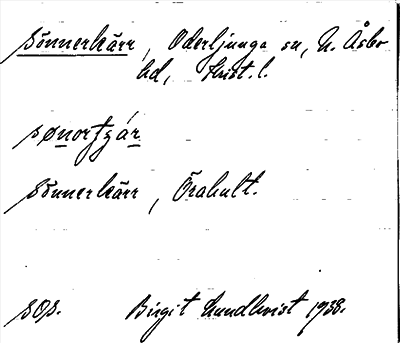 Sönnerkärr, Oderljunga sn, N. Åsbo
hd, Krist. l.
sønortɟár
Sönnerkärr, Örahult.
sOs. Birgit Lundkvist 1938.